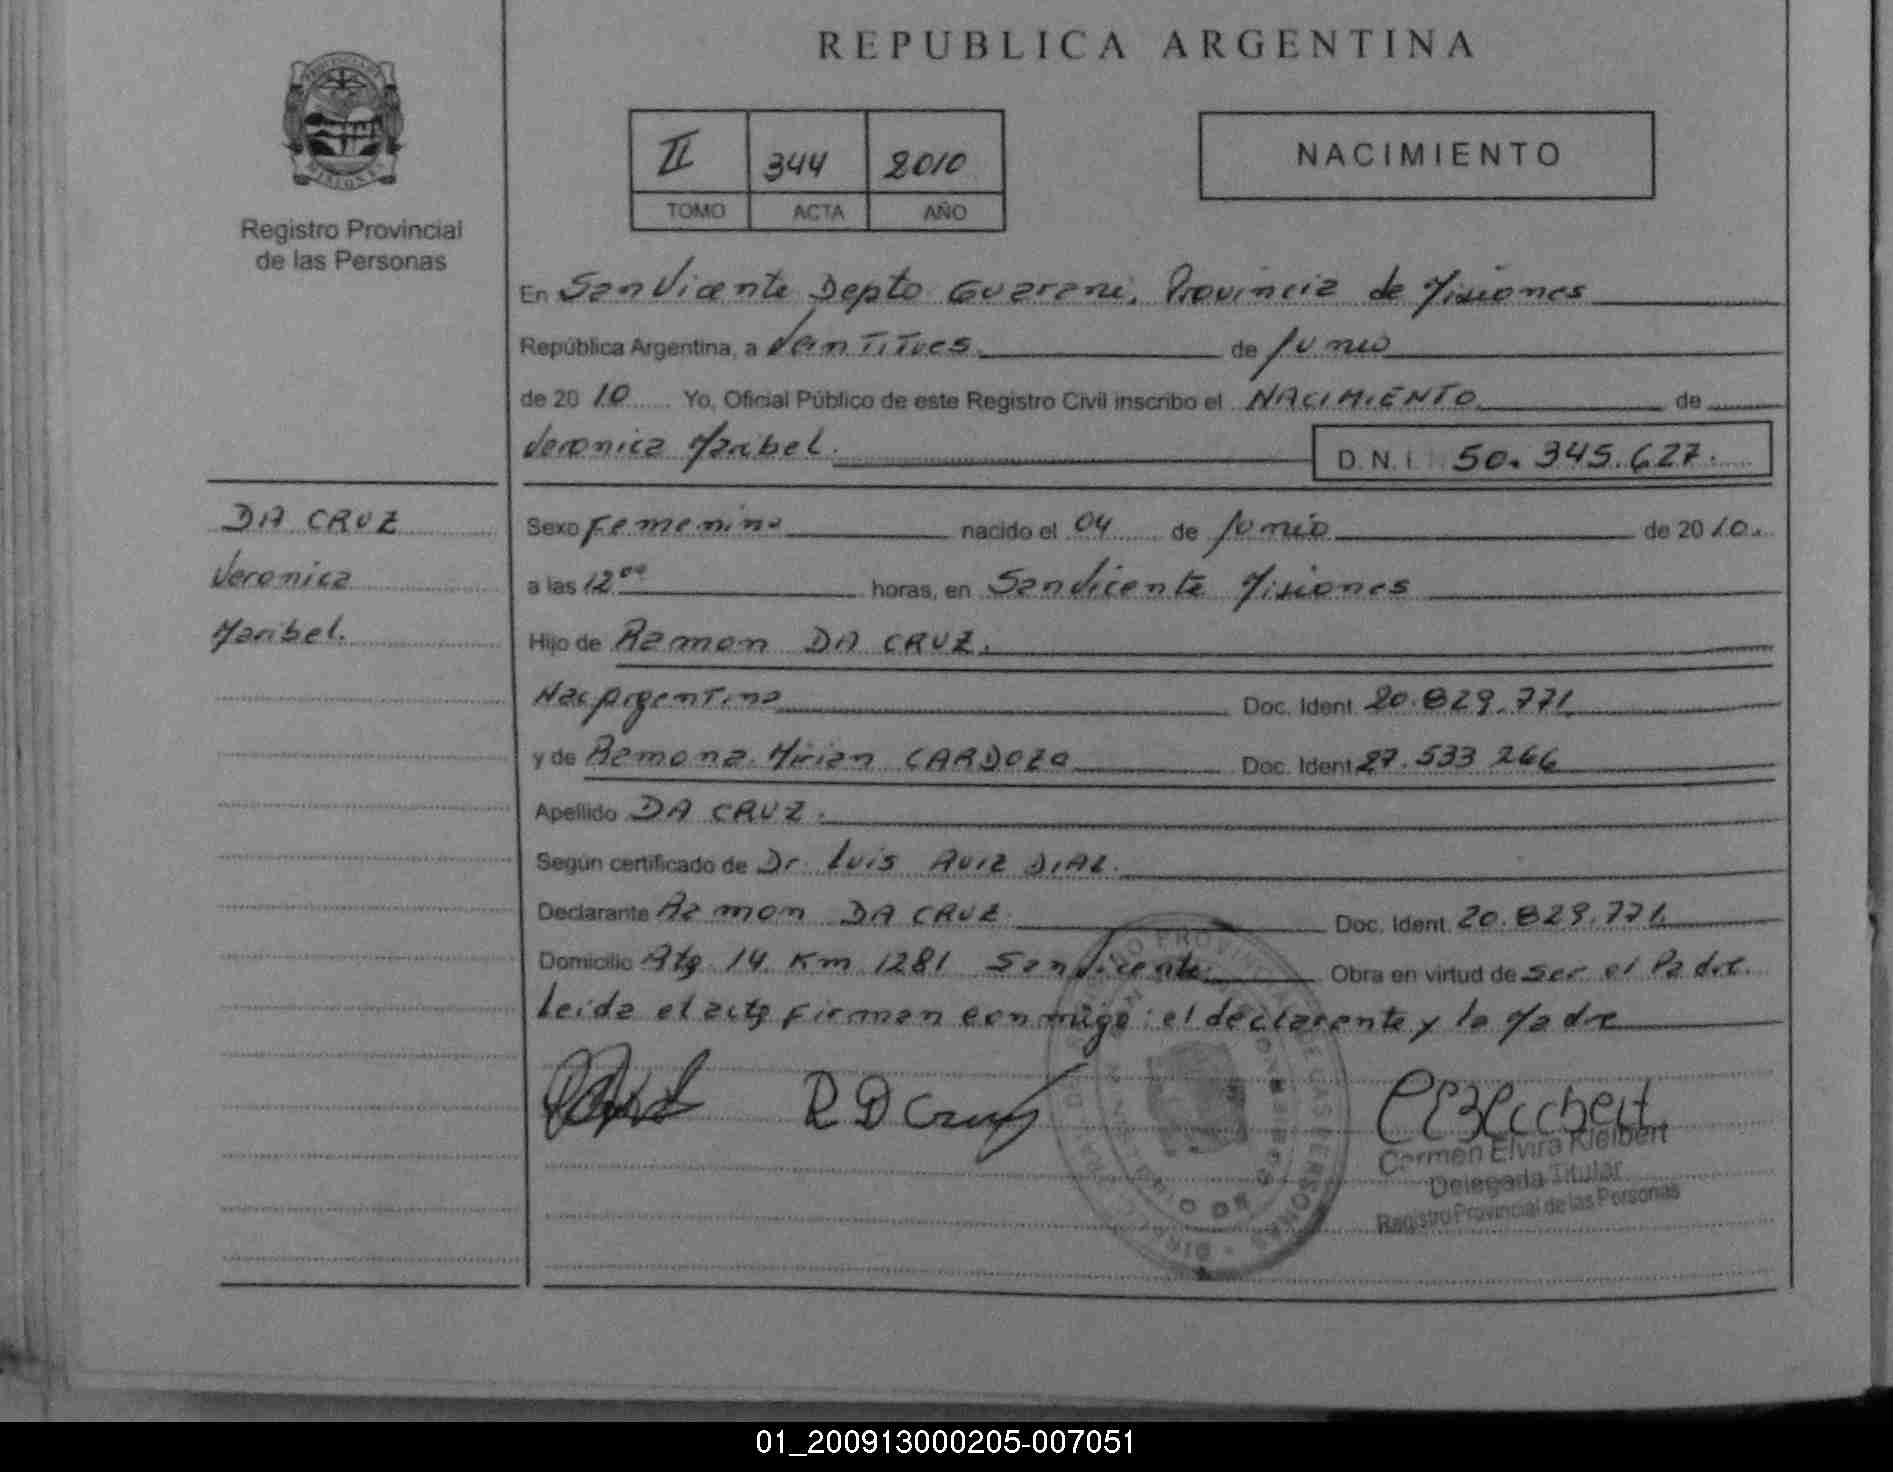 REPUBLICA ARGENTINA
PROVINCIA DE MISIONES
Registro Provincial
de las Personas
II 344 2010
TOMO ACTA AÑO
NACIMIENTO
En San Vicente Depto Guarani, Provincia de Misiones
República Argentina, a Veintitres de Junio
de 2010 Yo, Oficial Público de este Registro Civil inscribo el NACIMIENTO de
Veronica Maribel. D.N.I. 50.345.627.
DA CRUZ
Veronica
Maribel.
Sexo Femenino nacido el 04 de Junio de 2010.
a las 12 00 horas, en San Vicente Misiones
Hijo de Ramon DA CRUZ.
Nac Argentina Doc. Ident. 20.829.771
y de Ramona Mirian CARDOZO Doc. Ident 27.533 266
Apellido DA CRUZ.
Según certificado de Dr. Luis RUIZ DIAZ.
Declarante Ramon DA CRUZ Doc. Ident. 20.829.771
Domicilio Rta 14 Km 1281 San Vicente. Obra en virtud de ser el Padre.
Leida el acta firman conmigo: el declarante y la Madre
R D Cruz
Carmen Elvira Kleibert
Delegada Titular
Registro Provincial de las Personas
01_200913000205-007051